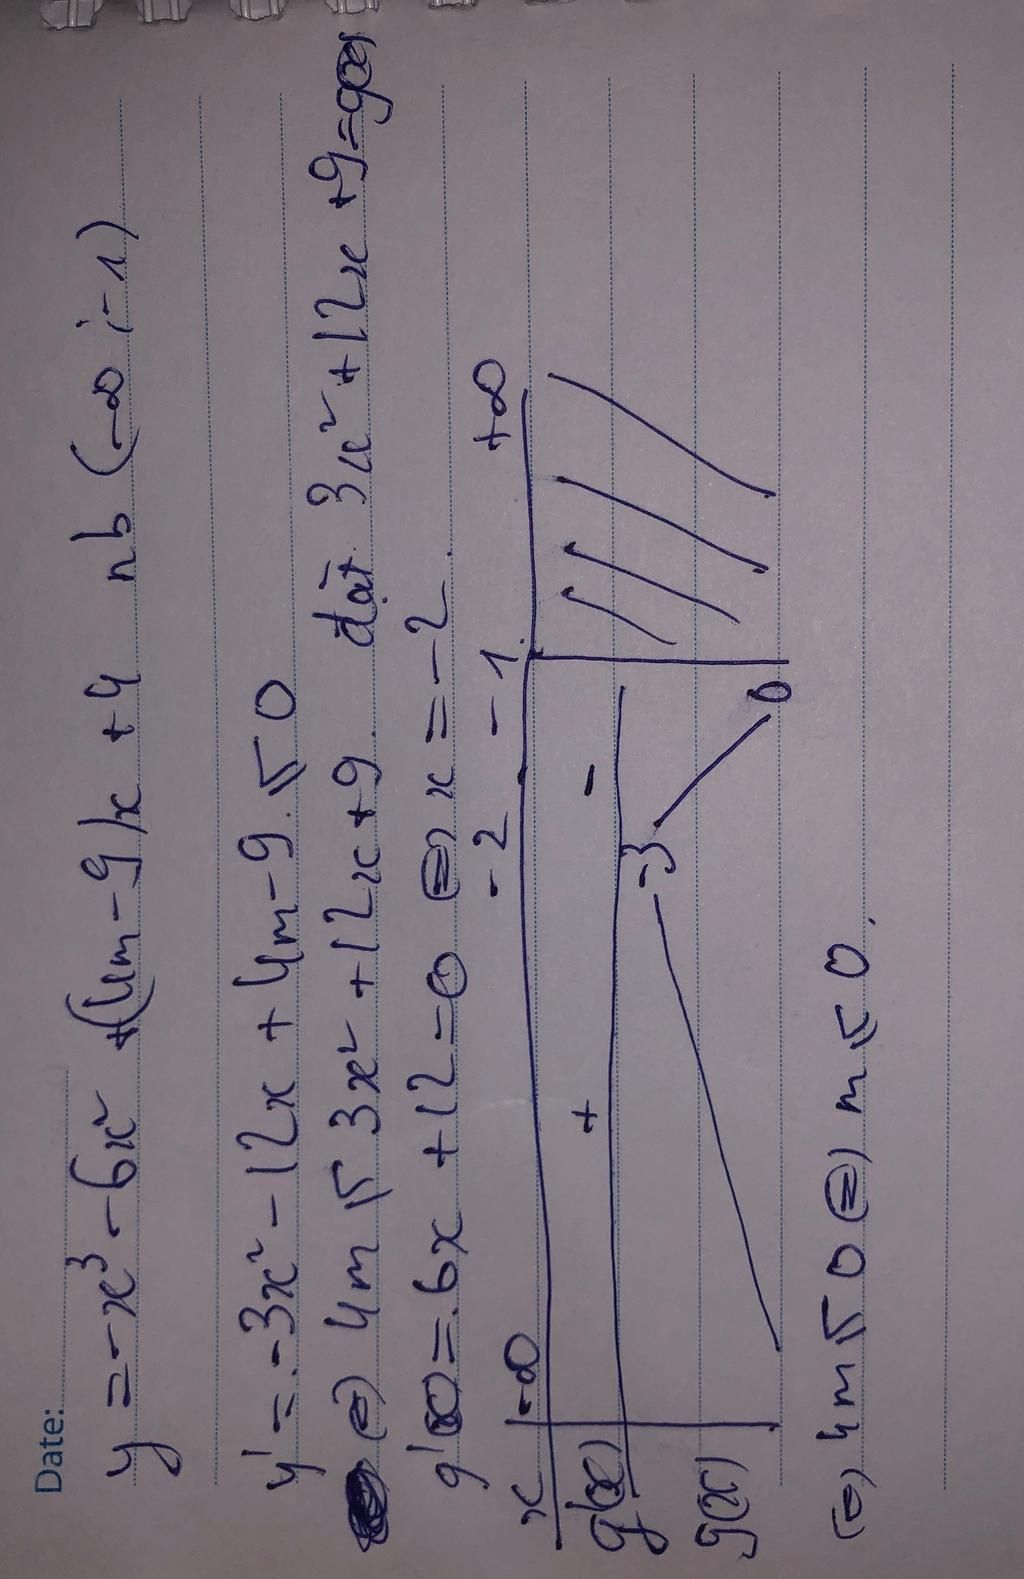 Date:
y = -x³ - 6x² + (4m - 9)x + 4 nb (-∞ ; -1)
y' = -3x² - 12x + 4m - 9 ≤ 0
⇔ 4m ≤ 3x² + 12x + 9. đặt 3x² + 12x + 9 = g(x)
g'(x) = 6x + 12 = 0 ⇔ x = -2.
x -∞ -2 -1 +∞
g'(x) + -
g(x) -3 0
⇔ 4m ≤ 0 ⇔ m ≤ 0.